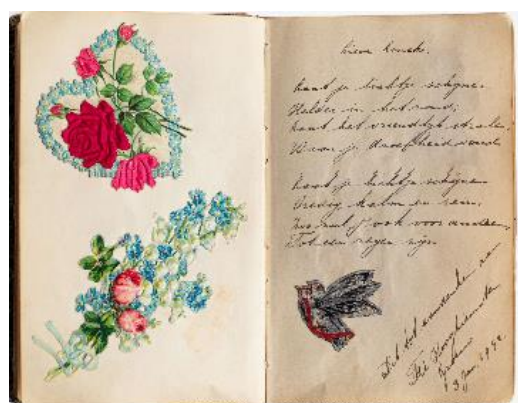 Lieve
Laat je lichtje schijnen
Helder in het rond,
Laat het vriendlijk stralen,
Waar je droefheid vond
Laat je lichtje schijnen
Vredig kalm en rein,
jij ook voor anderen
Tot een zegen zijn
Dit tot aandenken van
13 Jan